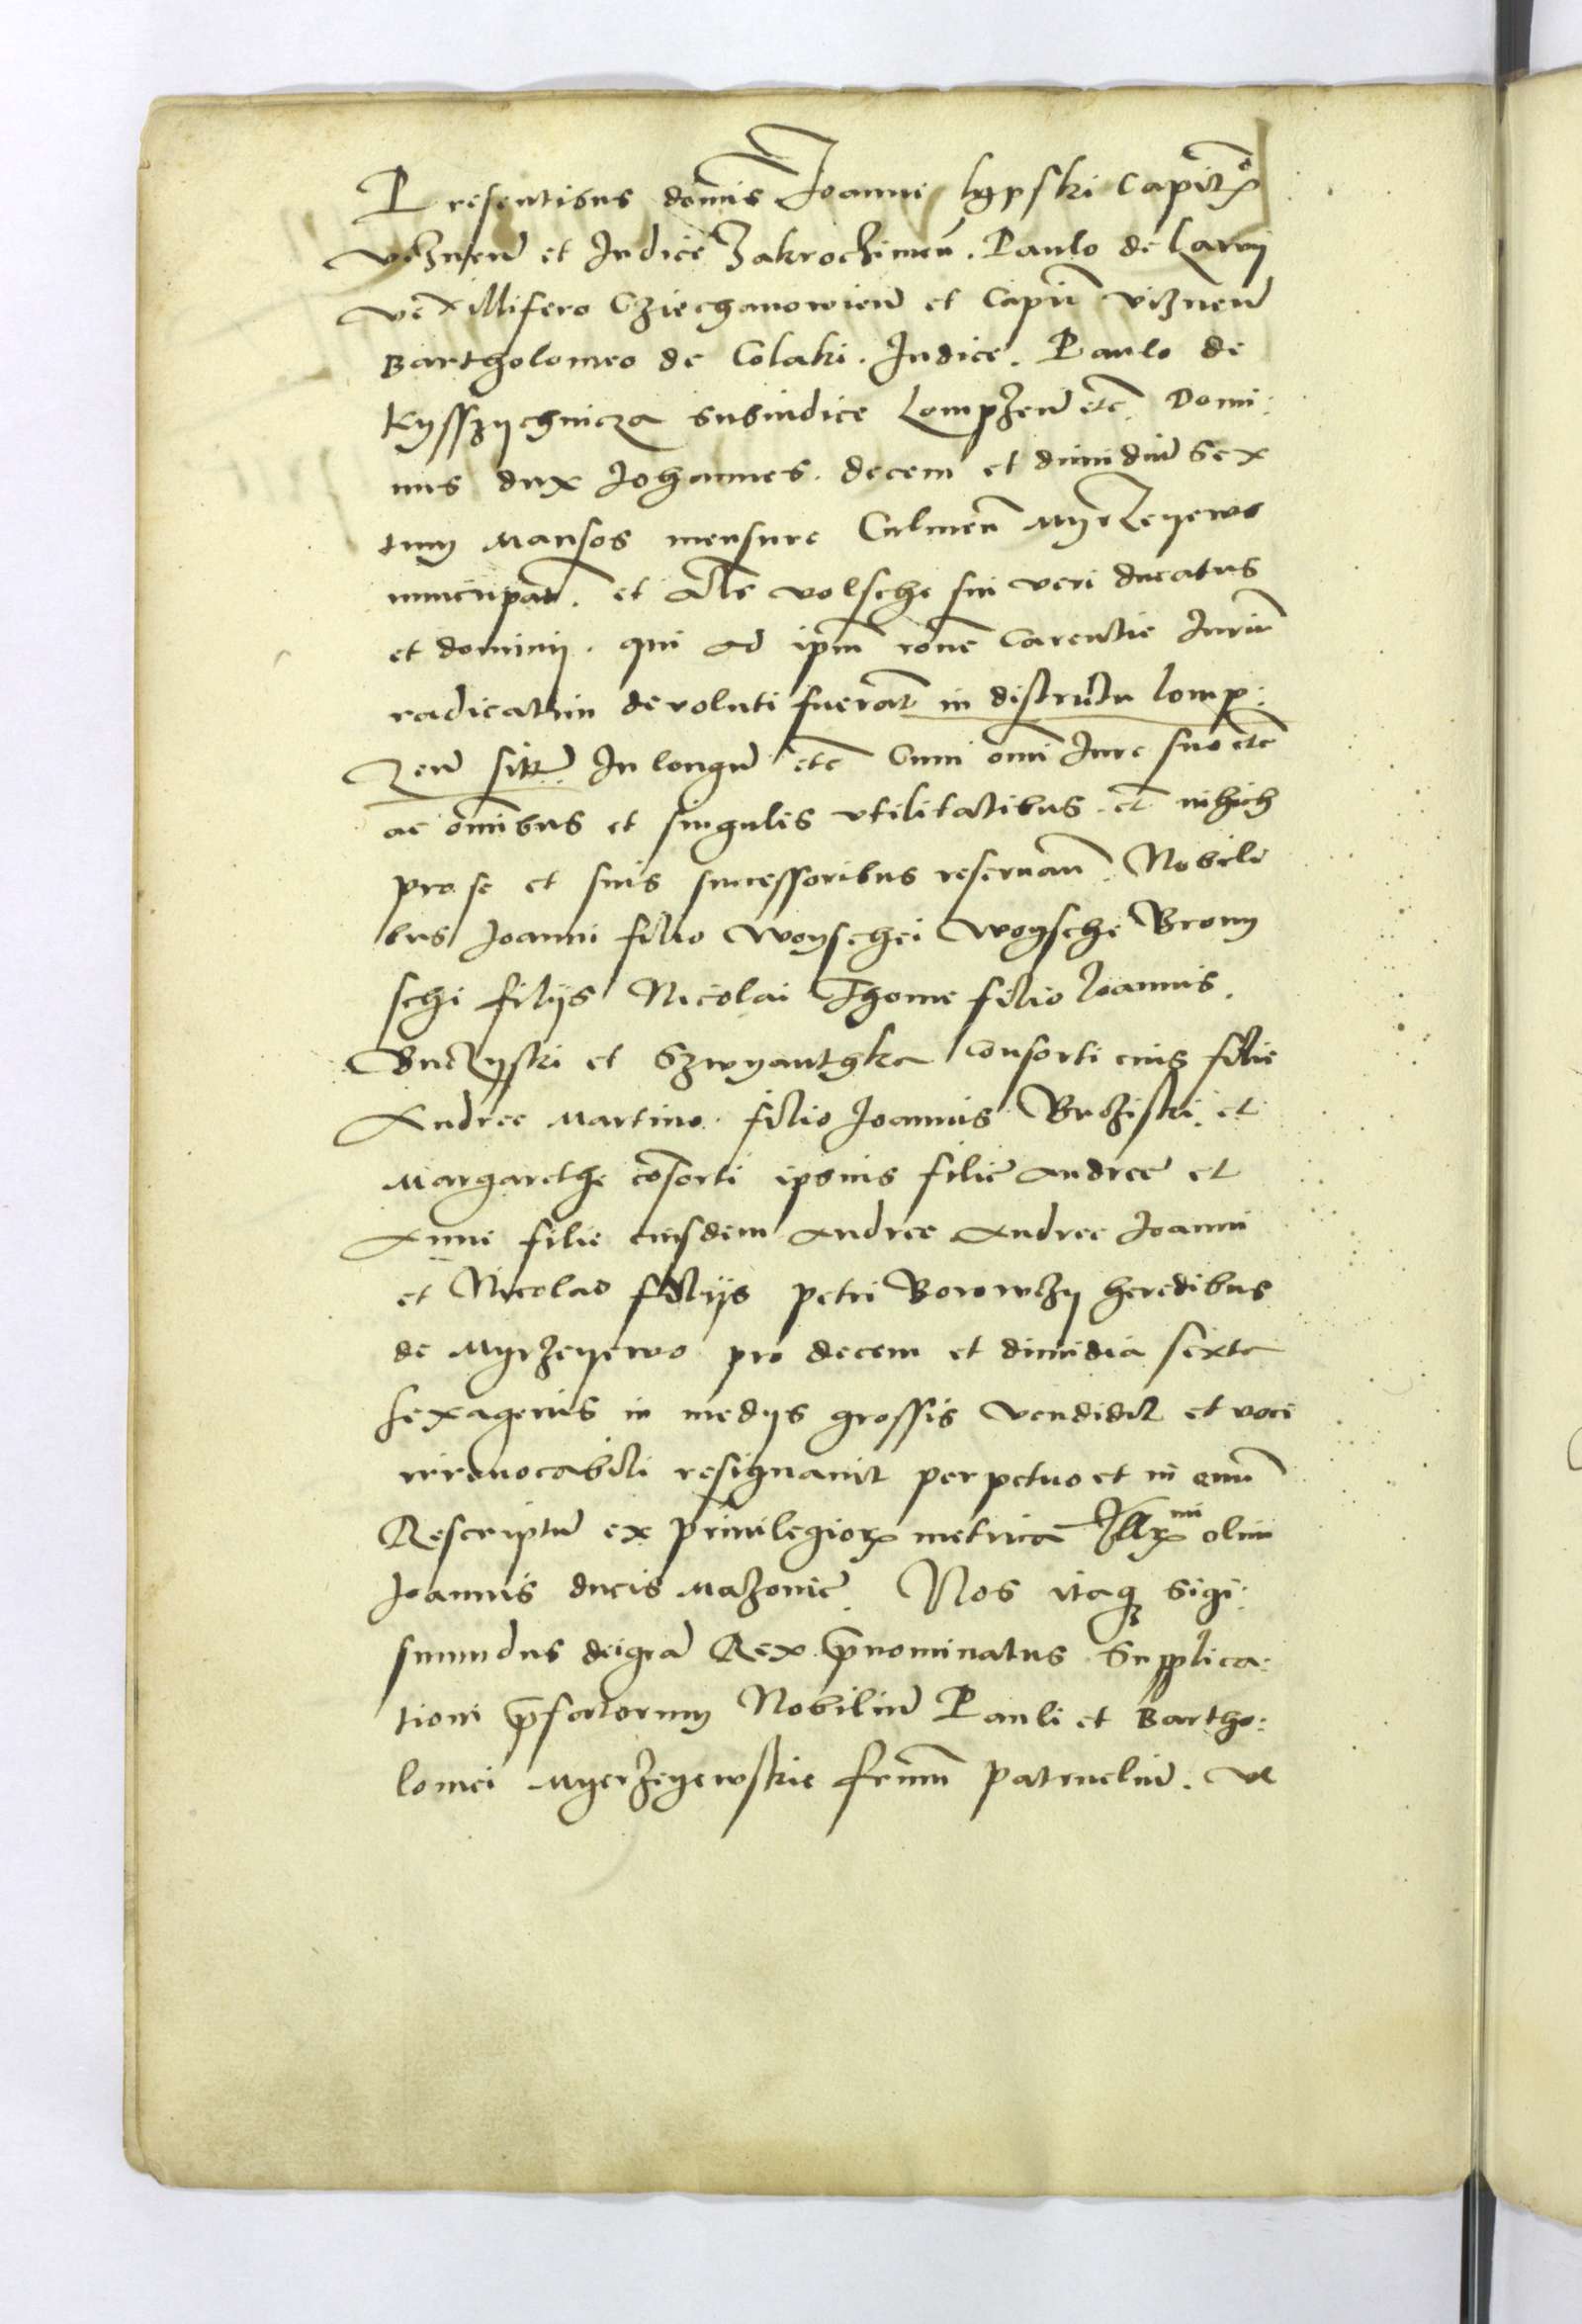 Presentibus dominis Joanne Lypski Capitaneo
viznen et Judice Zakrochimen. Paulo de Larvy
vexillifero Cziechanowien et Capitn vizneñ
Bartholomeo de Golaki. Judice. Paulo de
Kysszychnicza subiudice Lompzen etc. Domi:
nus dux Johannes. decem et dimidiu sex
tum Mansos mensure Culmen Myrzeyewo
nuncupat. et als volsche sui veri ducatus
et dominij. qui ad ipm rone Carentie Juriu
radicatim devoluti fuerat in districtu lomp:
zen In longu etc Cum omi Jure suo etc
ac omibus et singulis vtilitatibus. et nihil
pro se et suis successoribus reseruan. Nobili
bus Joanni filio Woyschei Woysche Brony
schi filijs Nicolai Thome filio Joannis.
Buczyski et Szwyanthka consorti eius filie
Andree Martino. filio Joannis Buczyski. et
Margarethe cosorti ipsius filie Andree et
Anne filie eiusdem Andree Andree Joanni
et Nicolao filijs petri Borowczy heredibus
de Myrzeyewo pro decem et dimidia sexta
sexagenis in medijs grossis vendidit et voce
irreuocabili resignauit perpetuo et in euu
Rescriptu ex priuilegior metrica Illrmi olim
Joannis ducis Mazouie. Nos itaq Sigi:
smundus dei gra Rex prenominatus Supplica:
tioni prefatorum Nobiliu Pauli et Bartho:
lomei Myerzeyewskie frum patrueliu. vt